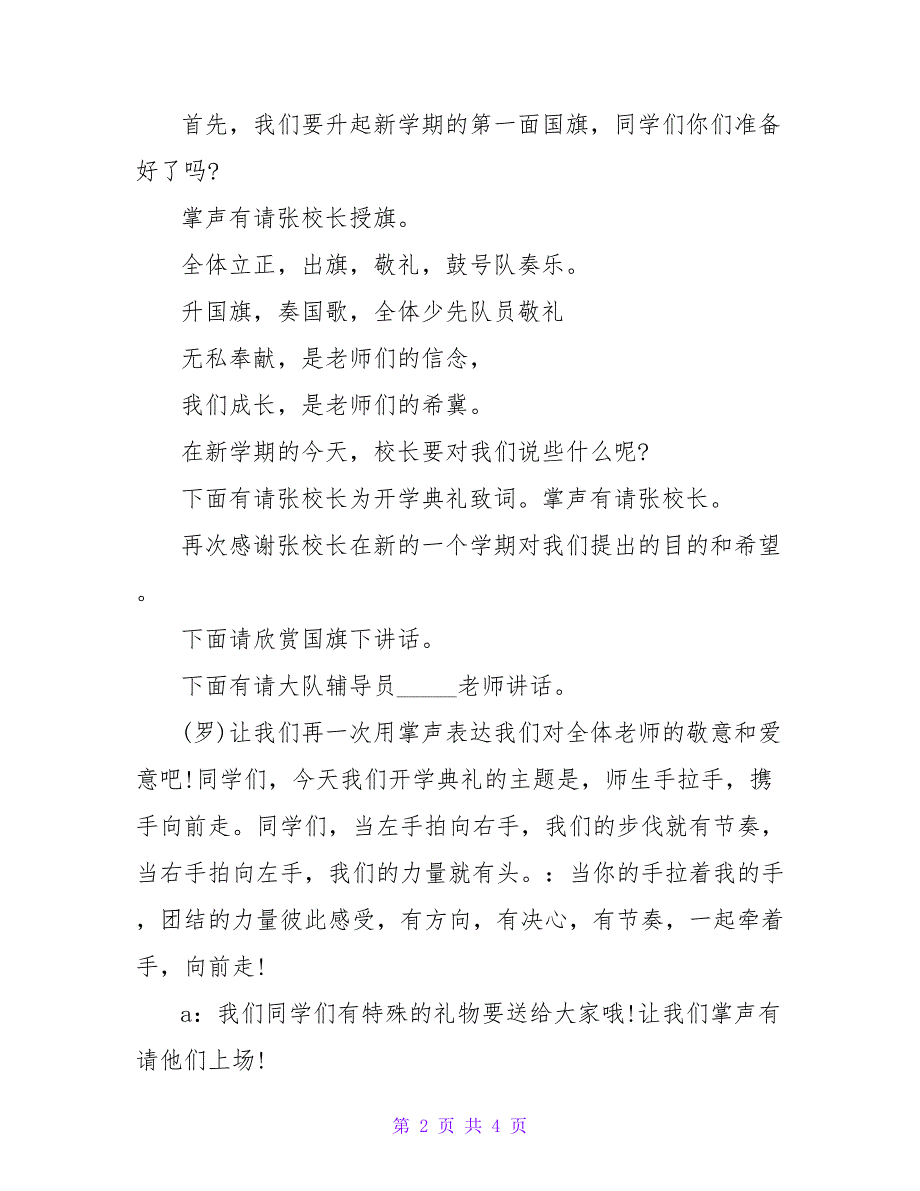 首先，我们要升起新学期的第一面国旗，同学们你们准备
好了吗?
掌声有请张校长授旗。
全体立正，出旗，敬礼，鼓号队奏乐。
升国旗，奏国歌，全体少先队员敬礼
无私奉献，是老师们的信念，
我们成长，是老师们的希冀。
在新学期的今天，校长要对我们说些什么呢?
下面有请张校长为开学典礼致词。掌声有请张校长。
再次感谢张校长在新的一个学期对我们提出的目的和希望
。
下面请欣赏国旗下讲话。
下面有请大队辅导员_____老师讲话。
(罗)让我们再一次用掌声表达我们对全体老师的敬意和爱
意吧!同学们，今天我们开学典礼的主题是，师生手拉手，携
手向前走。同学们，当左手拍向右手，我们的步伐就有节奏，
当右手拍向左手，我们的力量就有头。：当你的手拉着我的手
，团结的力量彼此感受，有方向，有决心，有节奏，一起牵着
手，向前走!
a：我们同学们有特殊的礼物要送给大家哦!让我们掌声有
请他们上场!
第 2 页 共 4 页